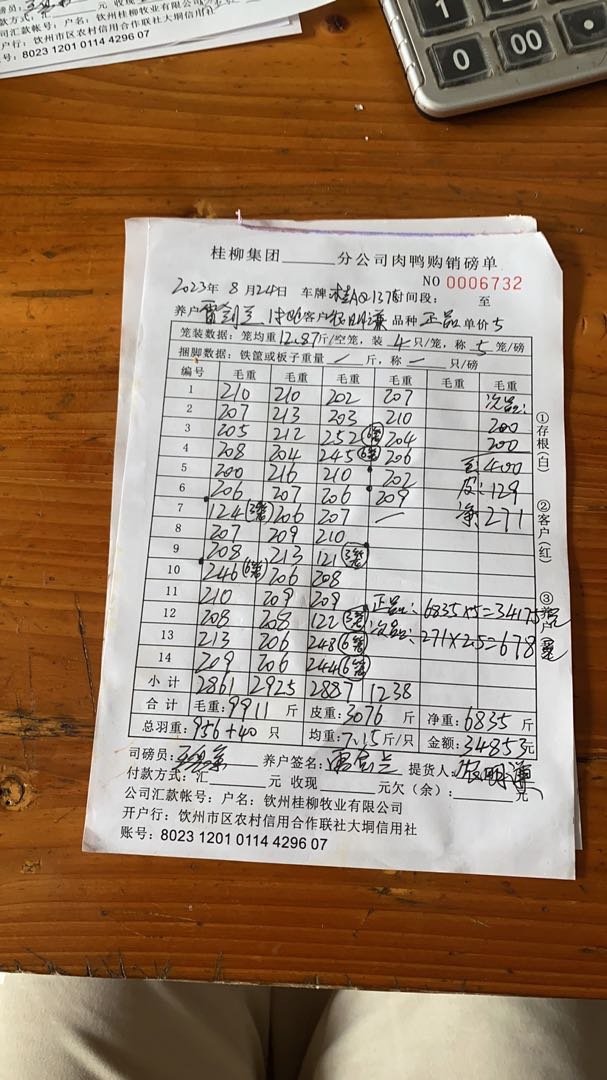 元 收现
付款方式：汇
公司汇款帐号：户名：钦州桂柳牧业有限公司
开户行：钦州市区农村信用合作联社大垌信用社
账号：8023 1201 0114 4296 07
1 2
0 00
桂柳集团______分公司肉鸭购销磅单
NO 0006732
2023年 8月24日 车牌 时间段： 至
养户 客户 品种 正品 单价 5
笼装数据：笼均重12.87斤/空笼，装 4 只/笼，称 5 笼/磅
捆脚数据：铁筐或板子重量 — 斤，称 — 只/磅
编号 毛重 毛重 毛重 毛重 毛重 毛重
1 210 210 202 207 次品：
2 207 213 203 210 200
3 205 212 252(6笼) 204 200
4 208 204 245(6笼) 206 毛：400
5 200 216 210 202 皮：129
6 206 207 206 209 净：271
7 124(3笼) 206 207 —
8 207 209 210
9 208 213 121(3笼)
10 246(6笼) 206 208
11 210 209 209 正品：6835×5=34175
12 208 208 122(3笼) 次品：271×2.5=678
13 213 206 248(6笼)
14 209 206 244(6笼)
小计 2861 2925 2887 1238
合计 毛重：9911 斤 皮重：3076 斤 净重：6835 斤
总羽重：956+40 只 均重：7.15斤/只 金额：34853元
司磅员： 养户签名： 提货人：
付款方式：汇______元 收现______元欠（余）：______元
公司汇款帐号：户名：钦州桂柳牧业有限公司
开户行：钦州市区农村信用合作联社大垌信用社
账号：8023 1201 0114 4296 07
①存根（白）
②客户（红）
③